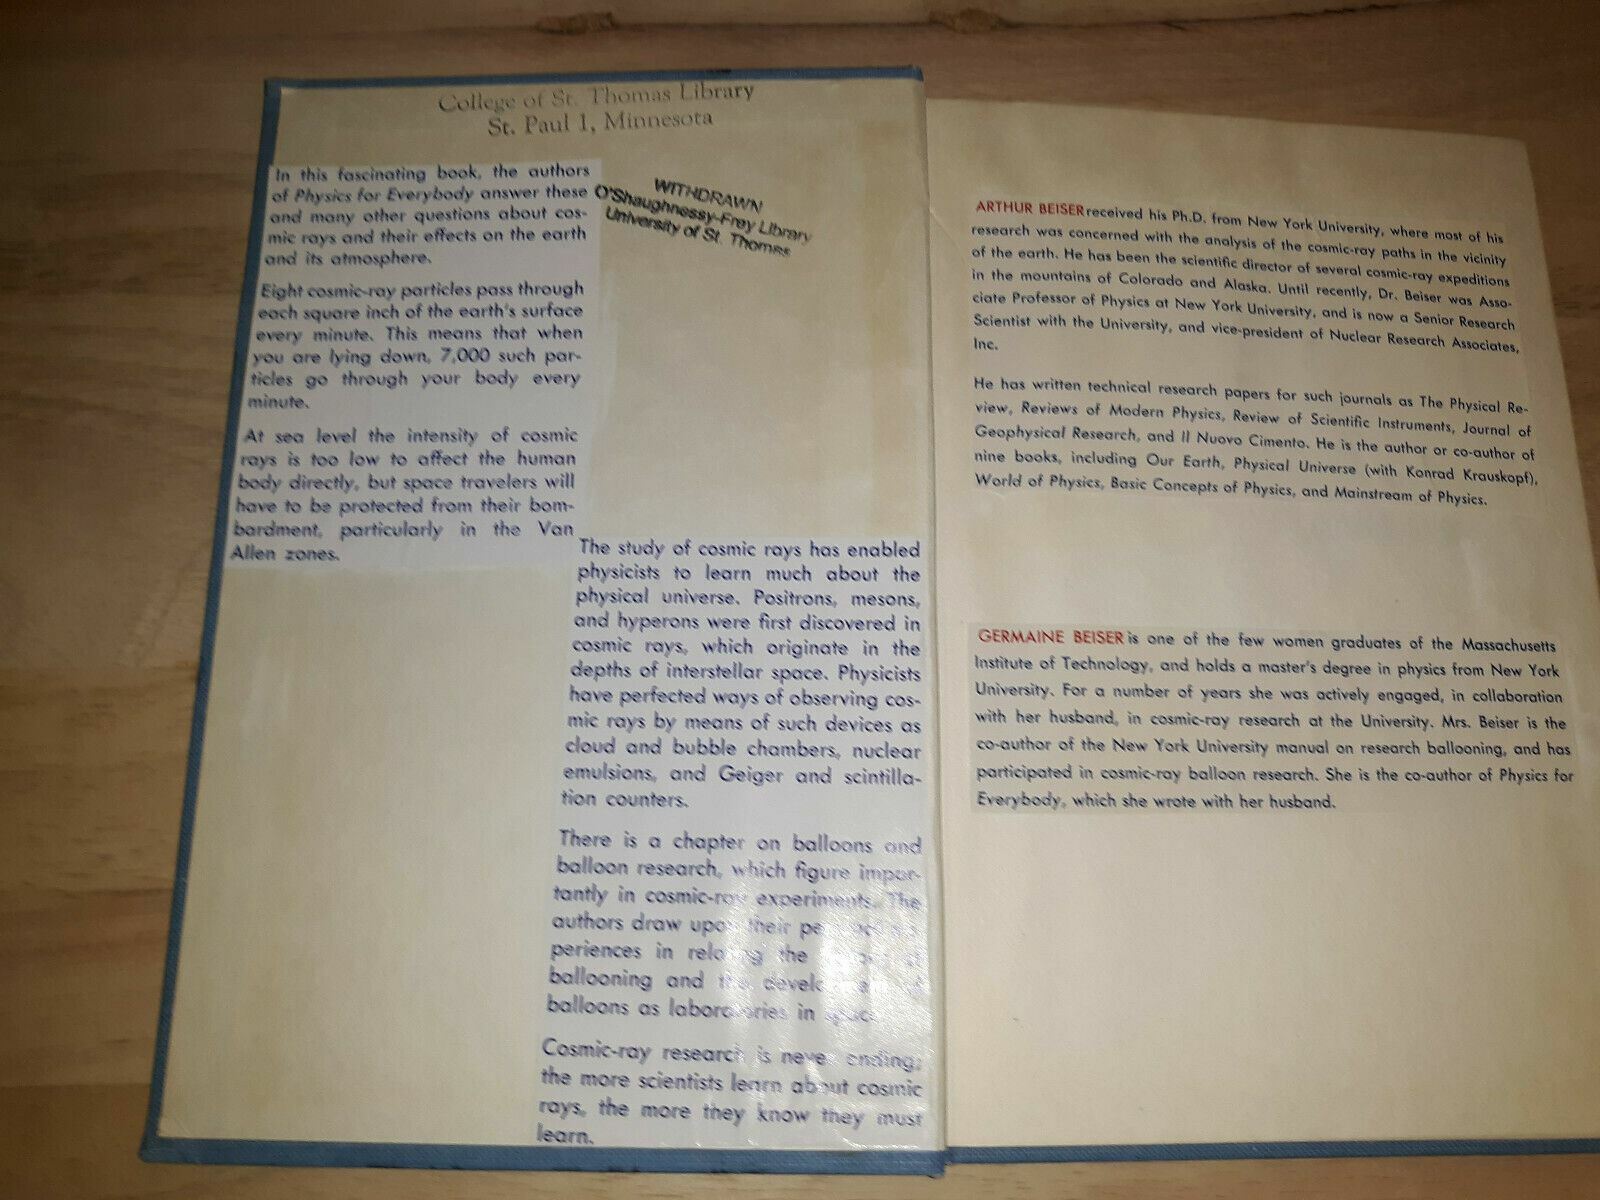 College of St. Thomas Library
St. Paul 1, Minnesota
In this fascinating book, the authors
of Physics for Everybody answer these
and many other questions about cos-
mic rays and their effects on the earth
and its atmosphere.
Eight cosmic-ray particles pass through
each square inch of the earth's surface
every minute. This means that when
you are lying down, 7,000 such par-
ticles go through your body every
minute.
At sea level the intensity of cosmic
rays is too low to affect the human
body directly, but space travelers will
have to be protected from their bom-
bardment, particularly in the Van
Allen zones.
WITHDRAWN
O'Shaughnessy-Frey Library
University of St. Thomas
The study of cosmic rays has enabled
physicists to learn much about the
physical universe. Positrons, mesons,
and hyperons were first discovered in
cosmic rays, which originate in the
depths of interstellar space. Physicists
have perfected ways of observing cos-
mic rays by means of such devices as
cloud and bubble chambers, nuclear
emulsions, and Geiger and scintilla-
tion counters.
There is a chapter on balloons and
balloon research, which figure impor-
tantly in cosmic-ray experiments. The
authors draw upon their
periences in relating the
ballooning and the development of
balloons as laboratories in space.
Cosmic-ray research is never ending;
the more scientists learn about cosmic
rays, the more they know they must
learn.
ARTHUR BEISER received his Ph.D. from New York University, where most of his
research was concerned with the analysis of the cosmic-ray paths in the vicinity
of the earth. He has been the scientific director of several cosmic-ray expeditions
in the mountains of Colorado and Alaska. Until recently, Dr. Beiser was Asso-
ciate Professor of Physics at New York University, and is now a Senior Research
Scientist with the University, and vice-president of Nuclear Research Associates,
Inc.
He has written technical research papers for such journals as The Physical Re-
view, Reviews of Modern Physics, Review of Scientific Instruments, Journal of
Geophysical Research, and Il Nuovo Cimento. He is the author or co-author of
nine books, including Our Earth, Physical Universe (with Konrad Krauskopf),
World of Physics, Basic Concepts of Physics, and Mainstream of Physics.
GERMAINE BEISER is one of the few women graduates of the Massachusetts
Institute of Technology, and holds a master's degree in physics from New York
University. For a number of years she was actively engaged, in collaboration
with her husband, in cosmic-ray research at the University. Mrs. Beiser is the
co-author of the New York University manual on research ballooning, and has
participated in cosmic-ray balloon research. She is the co-author of Physics for
Everybody, which she wrote with her husband.